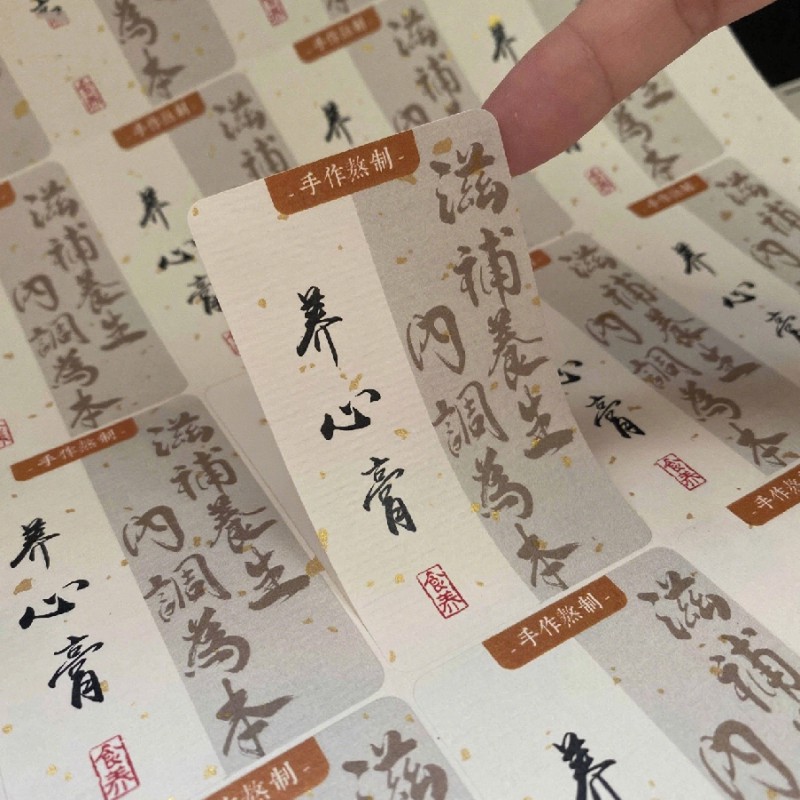 -手作熬制-
滋補養生
內調為本
养心膏
食养